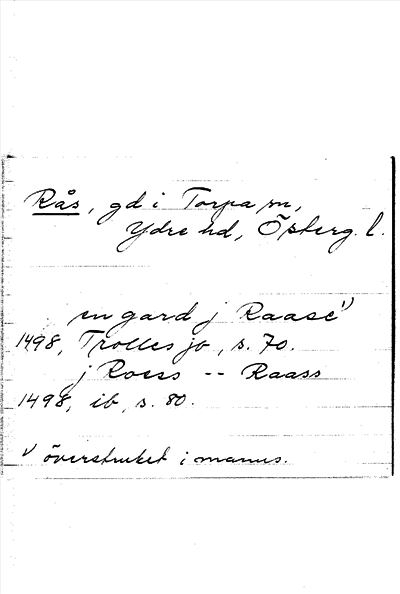 Rås, gd i Torpa sn,
Ydre hd, Österg. l.
en gard j Raase¹⁾
1498, Trolles jb, s. 70.
j Roess -- Raass
1498, ib, s. 80.
¹⁾ överstruket i manus.